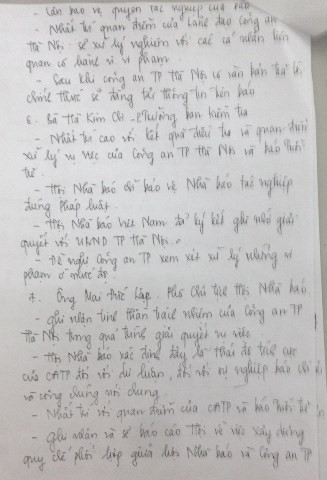 - Cần bảo vệ quyền tác nghiệp của báo
- Nhất trí quan điểm của lãnh đạo Công an
Hà Nội sẽ xử lý nghiêm với các cá nhân liên
quan có hành vi vi phạm.
- Sau khi Công an TP Hà Nội có văn bản trả lời
chính thức sẽ đăng tải thông tin trên báo
6. Bà Hà Kim Chi - Trưởng ban kiểm tra
- Nhất trí cao với kết quả điều tra và quan điểm
xử lý vụ việc của Công an TP Hà Nội và báo
trẻ.
- Hội Nhà báo chỉ bảo vệ Nhà báo tác nghiệp
đúng Pháp luật.
- Hội Nhà báo Việt Nam đã ký kết ghi nhớ giải
quyết với UBND TP Hà Nội.
- Đề nghị Công an TP xem xét xử lý những vi
phạm ở mức độ.
7. Ông Mai Đức Lộc. Phó Chủ tịch Hội Nhà báo
- Ghi nhận tinh thần trách nhiệm của Công an TP
Hà Nội trong quá trình giải quyết vụ việc.
- Hội Nhà báo xác định đây là thái độ tích cực
của CATP đối với dư luận, đối với sự nghiệp báo chí
và công chúng nói chung.
- Nhất trí với quan điểm của CATP và báo tuổi trẻ
- Ghi nhận và sẽ báo cáo Hội về việc xây dựng
quy chế phối hợp giữa Hội Nhà báo và Công an TP